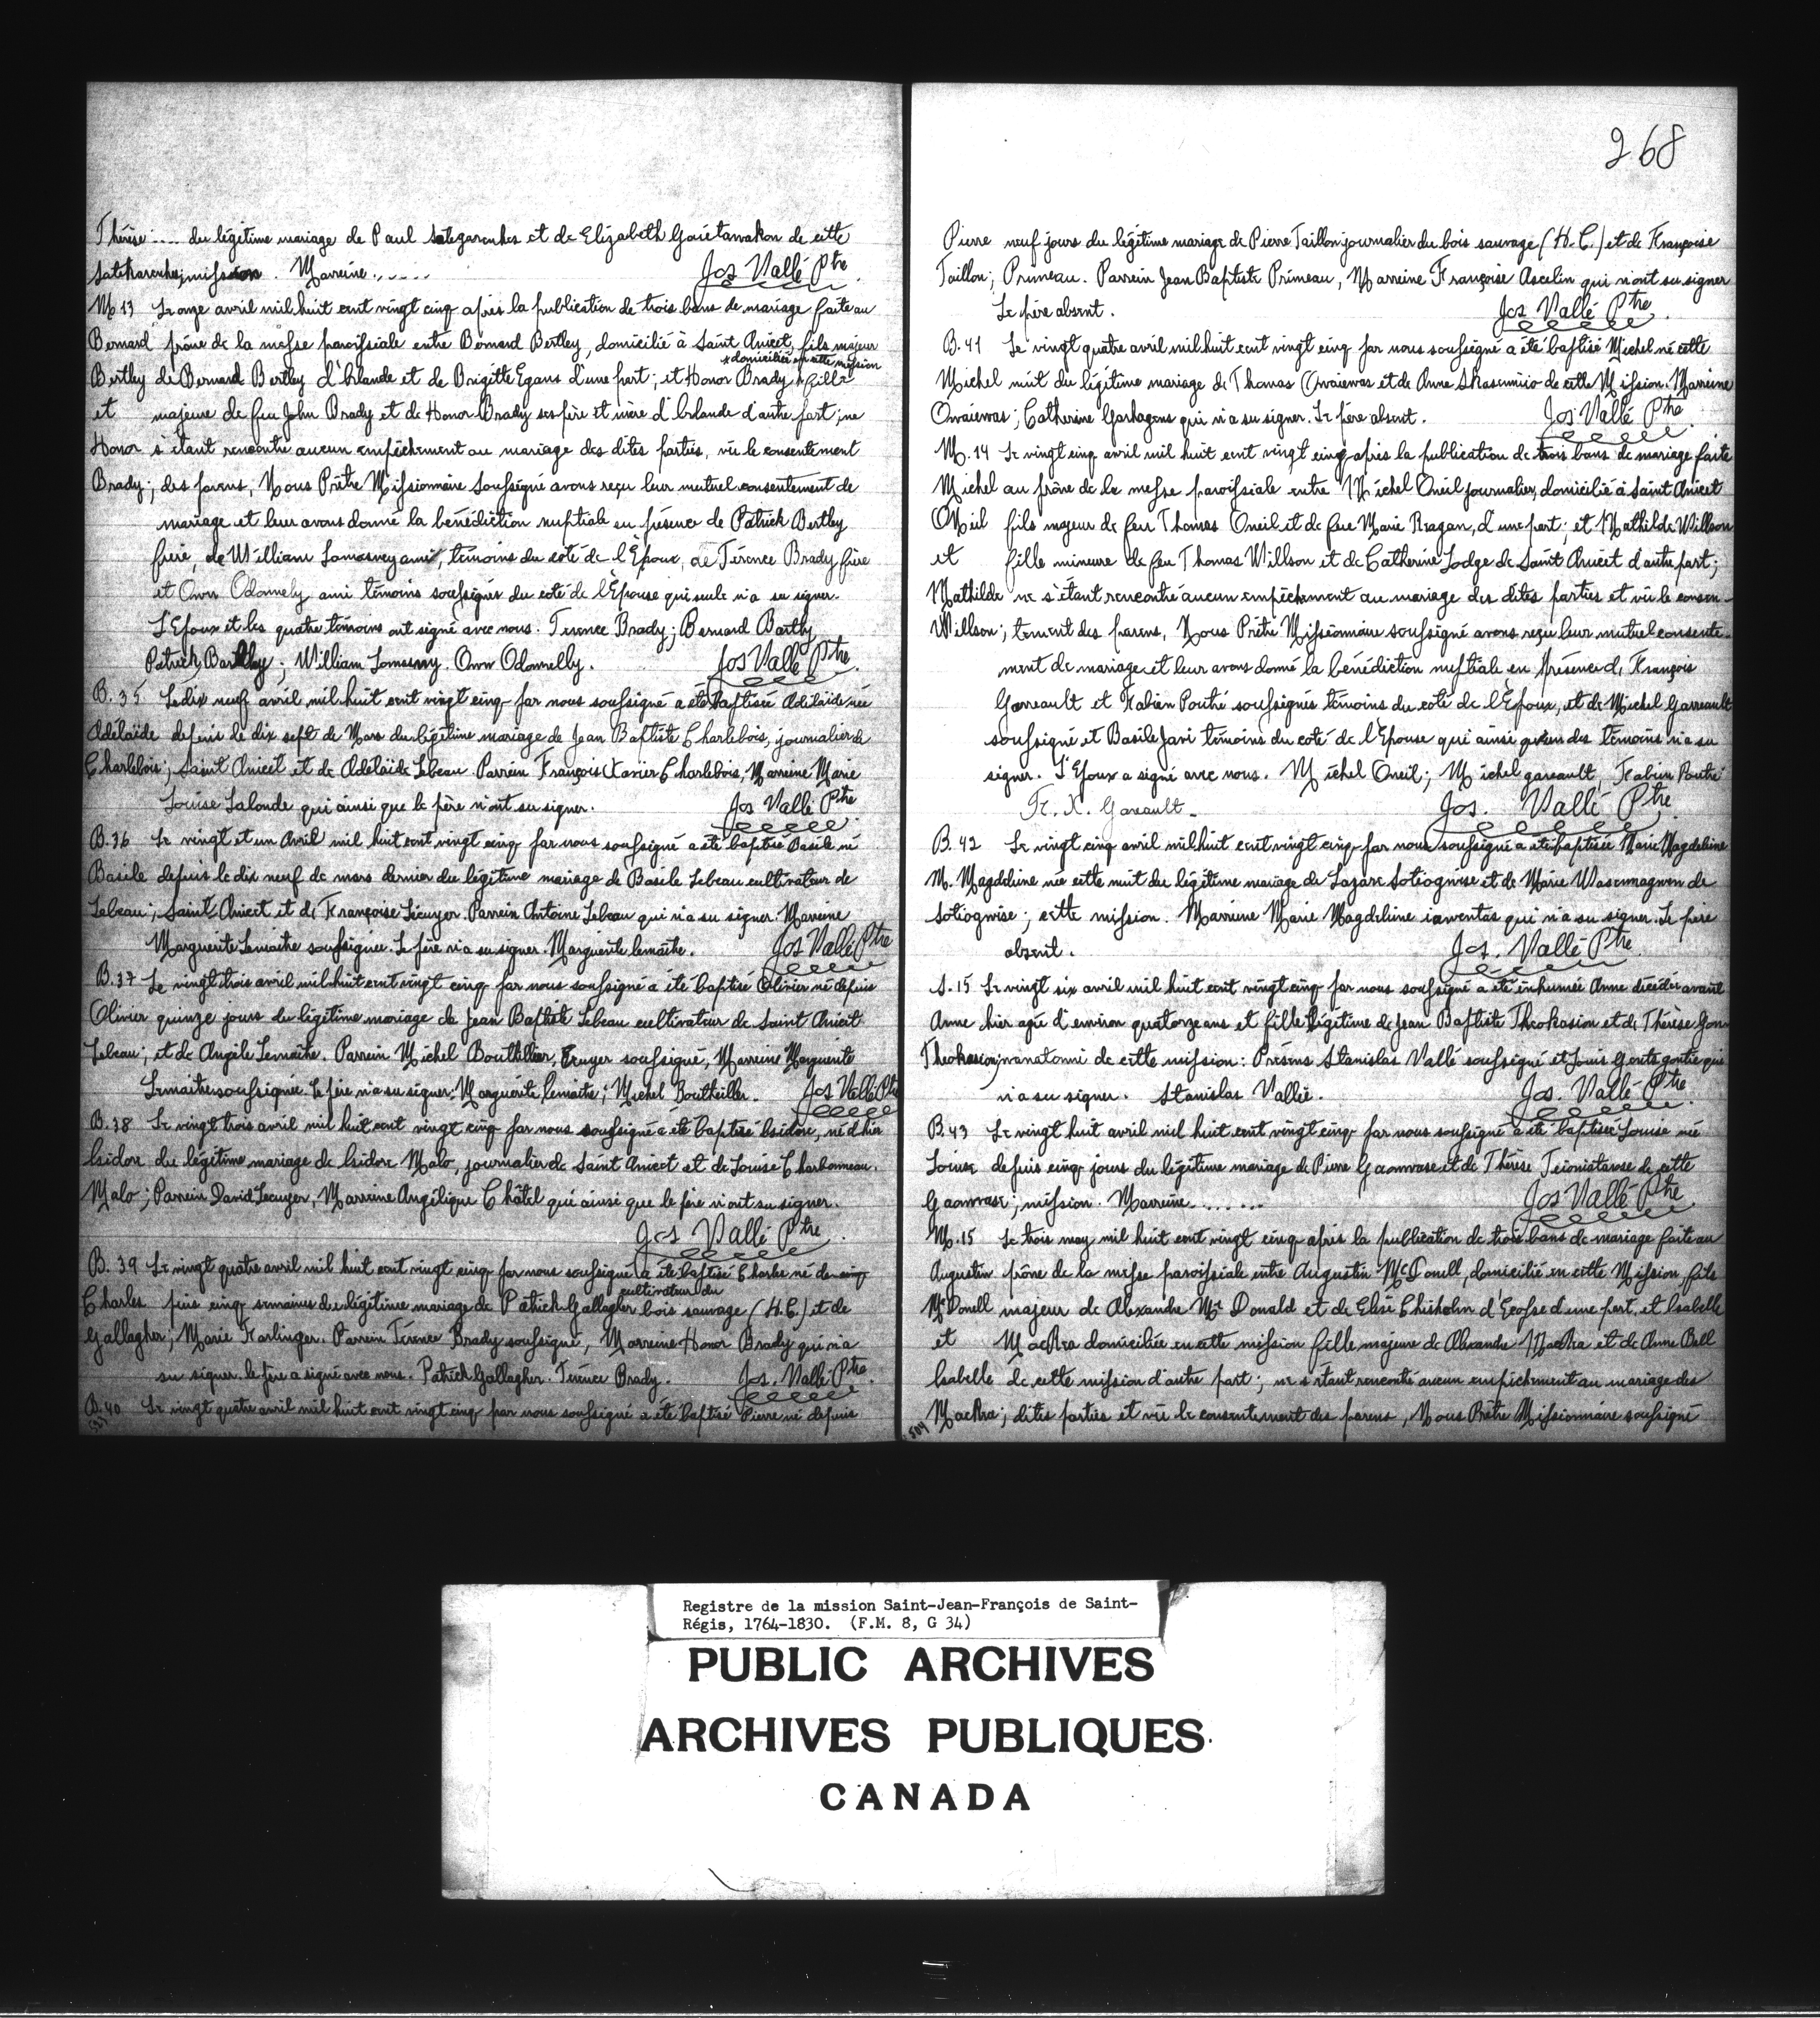 Thérèse .... du légitime mariage de Paul Sategarenhes et de Elizabeth Gouetawakon de cette
Satekarenhes; mission. Marreine......
Jos Vallé Ptre.
M 13 Le onze avril mil huit cent vingt cinq après la publication de trois bans de mariage faite au
Bernard prône de la messe paroissiale entre Bernard Bertley, domicilié à Saint Anicet, fils majeur
x domiciliée en cette mission
Bertley de Bernard Bertley d'Irlande et de Brigitte Egans d'une part; et Honor Brady x fille
et majeure de feu John Brady et de Honor Brady ses père et mère d'Irlande d'autre part; ne
Honor s'étant rencontré aucun empêchement au mariage des dites parties, vû le consentement
Brady; des parens, Nous Prêtre Missionnaire soussigné avons reçu leur mutuel consentement de
mariage et leur avons donné la bénédiction nuptiale en présence de Patrick Bertley
frère, de William Lomasney ami, témoins du coté de l'Epoux, de Térence Brady frère
et Owen Odonnely ami témoins soussignés du coté de l'Epouse qui seule n'a su signer.
L'Epoux et les quatre témoins ont signé avec nous. Terence Brady; Bernard Bartly
Patrick Bartley; William Lomasny. Owen Odonnelly.
Jos Vallé Ptre.
B. 35 Le dix neuf avril mil huit cent vingt cinq par nous soussigné a été baptisée Adélaïde née
Adélaïde depuis le dix sept de Mars du légitime mariage de Jean Baptiste Charlebois, journalier de
Charlebois; Saint Anicet et de Adélaïde Lebeau. Parrein François Xavier Charlebois, Marreine Marie
Louise Lalonde qui ainsi que le père n'ont su signer.
Jos Vallé Ptre.
B. 36 Le vingt et un Avril mil huit cent vingt cinq par nous soussigné a été baptisé Basile né
Basile depuis le dix neuf de mars dernier du légitime mariage de Basile Lebeau cultivateur de
Lebeau; Saint Anicet et de Françoise Lécuyer. Parrein Antoine Lebeau qui n'a su signer. Marreine
Marguerite Lemaitre soussignée. Le père n'a su signer. Marguerite lemaitre.
Jos Vallé Ptre
B. 37 Le vingt trois avril mil huit cent vingt cinq par nous soussigné a été baptisé Olivier né depuis
Olivier quinze jours du légitime mariage de Jean Baptiste Lebeau cultivateur de Saint Anicet
Lebeau; et de Angèle Lemaitre. Parrein Michel Bouthillier, Ecuyer soussigné, Marreine Marguerite
Lemaitre soussignée. Le père n'a su signer. Marguerite lemaitre; Michel Bouthillier.
Jos Vallé Ptre
B. 38 Le vingt trois avril mil huit cent vingt cinq par nous soussigné a été baptisé Isidore, né d'hier
Isidore du légitime mariage de Isidore Malo, journalier de Saint Anicet et de Louise Charbonneau.
Malo; Parrein David Lecuyer, Marreine Angélique Châtel qui ainsi que le père n'ont su signer.
Jos Vallé Ptre.
B. 39 Le vingt quatre avril mil huit cent vingt cinq par nous soussigné a été baptisé Charles né de
cultivateur du
Charles puis cinq semaines du légitime mariage de Patrick Gallagher bois sauvage (H.C.) et de
Gallagher; Marie Karlinger. Parrein Térence Brady soussigné, Marreine Honor Brady qui n'a
su signer. le père a signé avec nous. Patrick Gallagher. Térence Brady.
Jos. Vallé Ptre.
B. 40 Le vingt quatre avril mil huit cent vingt cinq par nous soussigné a été baptisé Pierre né depuis
268
Pierre neuf jours du légitime mariage de Pierre Taillon journalier du bois sauvage (H.C.) et de Françoise
Taillon; Primeau. Parrein Jean Baptiste Primeau, Marreine Françoise Asselin qui n'ont su signer
Le père absent.
Jos Vallé Ptre.
B. 41 Le vingt quatre avril mil huit cent vingt cinq par nous soussigné a été baptisé Michel né cette
Michel nuit du légitime mariage de Thomas Onvaiewas et de Anne Skasennio de cette Mission. Marreine
Onvaiewas; Catherine Garhagens qui n'a su signer. Le père absent.
Jos Vallé Ptre.
M. 14 Le vingt cinq avril mil huit cent vingt cinq après la publication de trois bans de mariage faite
Michel au prône de la messe paroissiale entre Michel Oneil journalier, domicilié à Saint Anicet
ONeil fils majeur de feu Thomas Oneil et de feue Marie Ragan, d'une part; et Mathilde Willson
et fille mineure de feu Thomas Willson et de Catherine Lodge de Saint Anicet d'autre part;
Mathilde ne s'étant rencontré aucun empêchement au mariage des dites parties et vû le consen-
Willson; tement des parens, Nous Prêtre Missionnaire soussigné avons reçu leur mutuel consente-
ment de mariage et leur avons donné la bénédiction nuptiale en présence de François
Garreault et Fabien Poutré soussignés témoins du coté de l'Epoux, et de Michel Garreault
soussigné et Basile Jari témoins du coté de l'Epouse qui ainsi qu'un des témoins n'a su
signer. L'Epoux a signé avec nous. Michel Oneil; Michel gareault, Fabien Poutré
Fr. X. Gareault.
Jos. Vallé Ptre
B. 42 Le vingt cinq avril mil huit cent vingt cinq par nous soussigné a été baptisée Marie Magdeleine
M. Magdeleine née cette nuit du légitime mariage de Lazare Sotiognise et de Marie Wasennagwen de
Sotiognise; cette mission. Marreine Marie Magdeleine iawentas qui n'a su signer. Le père
absent.
Jos. Vallé Ptre.
S. 15 Le vingt six avril mil huit cent vingt cinq par nous soussigné a été inhumée Anne décédée avant
Anne hier agée d'environ quatorze ans et fille légitime de Jean Baptiste Theokasion et de Thérèse Gon
Theokasion; wanatonni de cette mission: Présens Stanislas Vallé soussigné et Louis qui
n'a su signer. Stanislas Vallée.
Jos. Vallé Ptre.
B. 43 Le vingt huit avril mil huit cent vingt cinq par nous soussigné a été baptisée Louise née
Louise depuis cinq jours du légitime mariage de Pierre Gaonwase et de Thérèse Teioniatarase de cette
Gaonwase; mission. Marreine.......
Jos Vallé Ptre.
M. 15 Le trois may mil huit cent vingt cinq après la publication de trois bans de mariage faite au
Augustin prône de la messe paroissiale entre Augustin McDonell, domicilié en cette Mission, fils
McDonell majeur de Alexandre Mc Donald et de Elise Chisholm d'Ecosse d'une part, et Isabelle
et MacRa domiciliée en cette mission fille majeure de Alexandre MacRa et de Anne Bell
Isabelle de cette mission d'autre part; ne s'étant rencontré aucun empêchement au mariage des
MacRa; dites parties et vû le consentement des parens, Nous Prêtre Missionnaire soussigné
504
Registre de la mission Saint-Jean-François de Saint-
Régis, 1764-1830. (F.M. 8, G 34)
PUBLIC ARCHIVES
ARCHIVES PUBLIQUES
CANADA